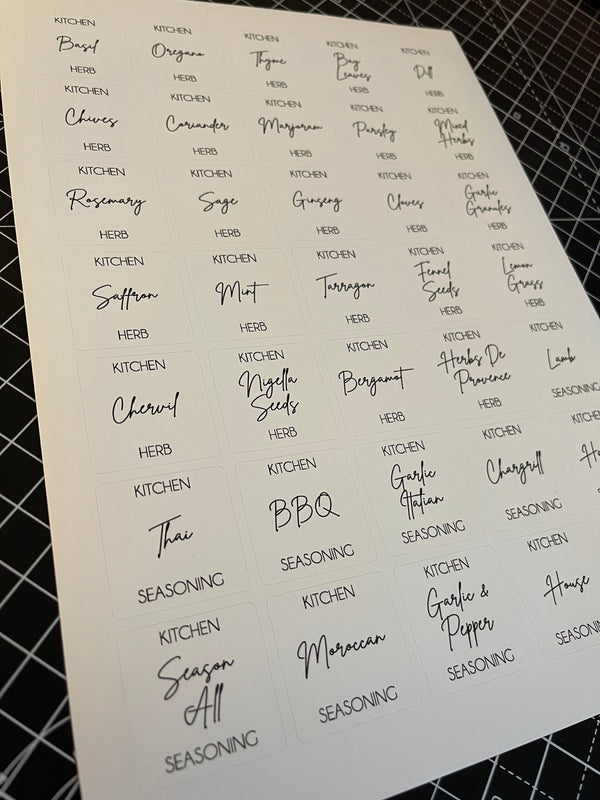 KITCHEN
Basil
HERB
KITCHEN
Oregano
HERB
KITCHEN
Thyme
HERB
KITCHEN
Bay
Leaves
HERB
KITCHEN
Dill
HERB
KITCHEN
Chives
HERB
KITCHEN
Coriander
HERB
KITCHEN
Marjoram
HERB
KITCHEN
Parsley
HERB
KITCHEN
Mixed
Herbs
HERB
KITCHEN
Rosemary
HERB
KITCHEN
Sage
HERB
KITCHEN
Ginseng
HERB
KITCHEN
Cloves
HERB
KITCHEN
Garlic
Granules
HERB
KITCHEN
Saffron
HERB
KITCHEN
Mint
HERB
KITCHEN
Tarragon
HERB
KITCHEN
Fennel
Seeds
HERB
KITCHEN
Lemon
Grass
HERB
KITCHEN
Chervil
HERB
KITCHEN
Nigella
Seeds
HERB
KITCHEN
Bergamot
HERB
KITCHEN
Herbs De
Provence
HERB
KITCHEN
Lamb
SEASONING
KITCHEN
Thai
SEASONING
KITCHEN
BBQ
SEASONING
KITCHEN
Garlic
Italian
SEASONING
KITCHEN
Chargrill
SEASONING
KITCHEN
Season
All
SEASONING
KITCHEN
Moroccan
SEASONING
KITCHEN
Garlic &
Pepper
SEASONING
KITCHEN
House